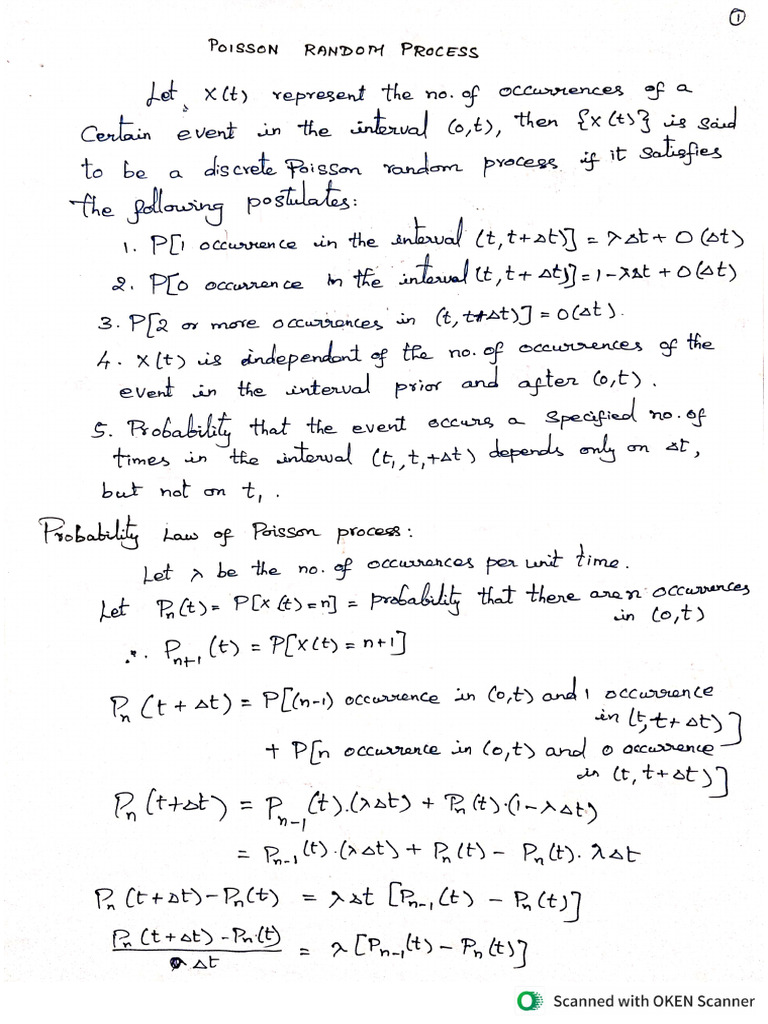 ①
POISSON RANDOM PROCESS
Let X(t) represent the no. of occurrences of a
Certain event in the interval (0,t), then {X(t)} is said
to be a discrete Poisson random process if it satisfies
the following postulates:
1. P[1 occurrence in the interval (t, t+Δt)] = λΔt + O(Δt)
2. P[0 occurrence in the interval (t, t+Δt)] = 1-λΔt + O(Δt)
3. P[2 or more occurrences in (t, t+Δt)] = O(Δt).
4. X(t) is independent of the no. of occurrences of the
event in the interval prior and after (0,t).
5. Probability that the event occurs a specified no. of
times in the interval (t₁, t₁+Δt) depends only on Δt,
but not on t₁.
Probability Law of Poisson process:
Let λ be the no. of occurrences per unit time.
Let Pₙ(t) = P[X(t)=n] = probability that there are n occurrences
in (0,t)
∴ Pₙ₊₁(t) = P[X(t) = n+1]
Pₙ(t+Δt) = P[(n-1) occurrence in (0,t) and 1 occurrence
in (t, t+Δt)]
+ P[n occurrence in (0,t) and 0 occurrence
in (t, t+Δt)]
Pₙ(t+Δt) = Pₙ₋₁(t).(λΔt) + Pₙ(t).(1-λΔt)
= Pₙ₋₁(t).(λΔt) + Pₙ(t) - Pₙ(t).λΔt
Pₙ(t+Δt) - Pₙ(t) = λΔt [Pₙ₋₁(t) - Pₙ(t)]
Pₙ(t+Δt) - Pₙ(t) / Δt = λ[Pₙ₋₁(t) - Pₙ(t)]
Scanned with OKEN Scanner